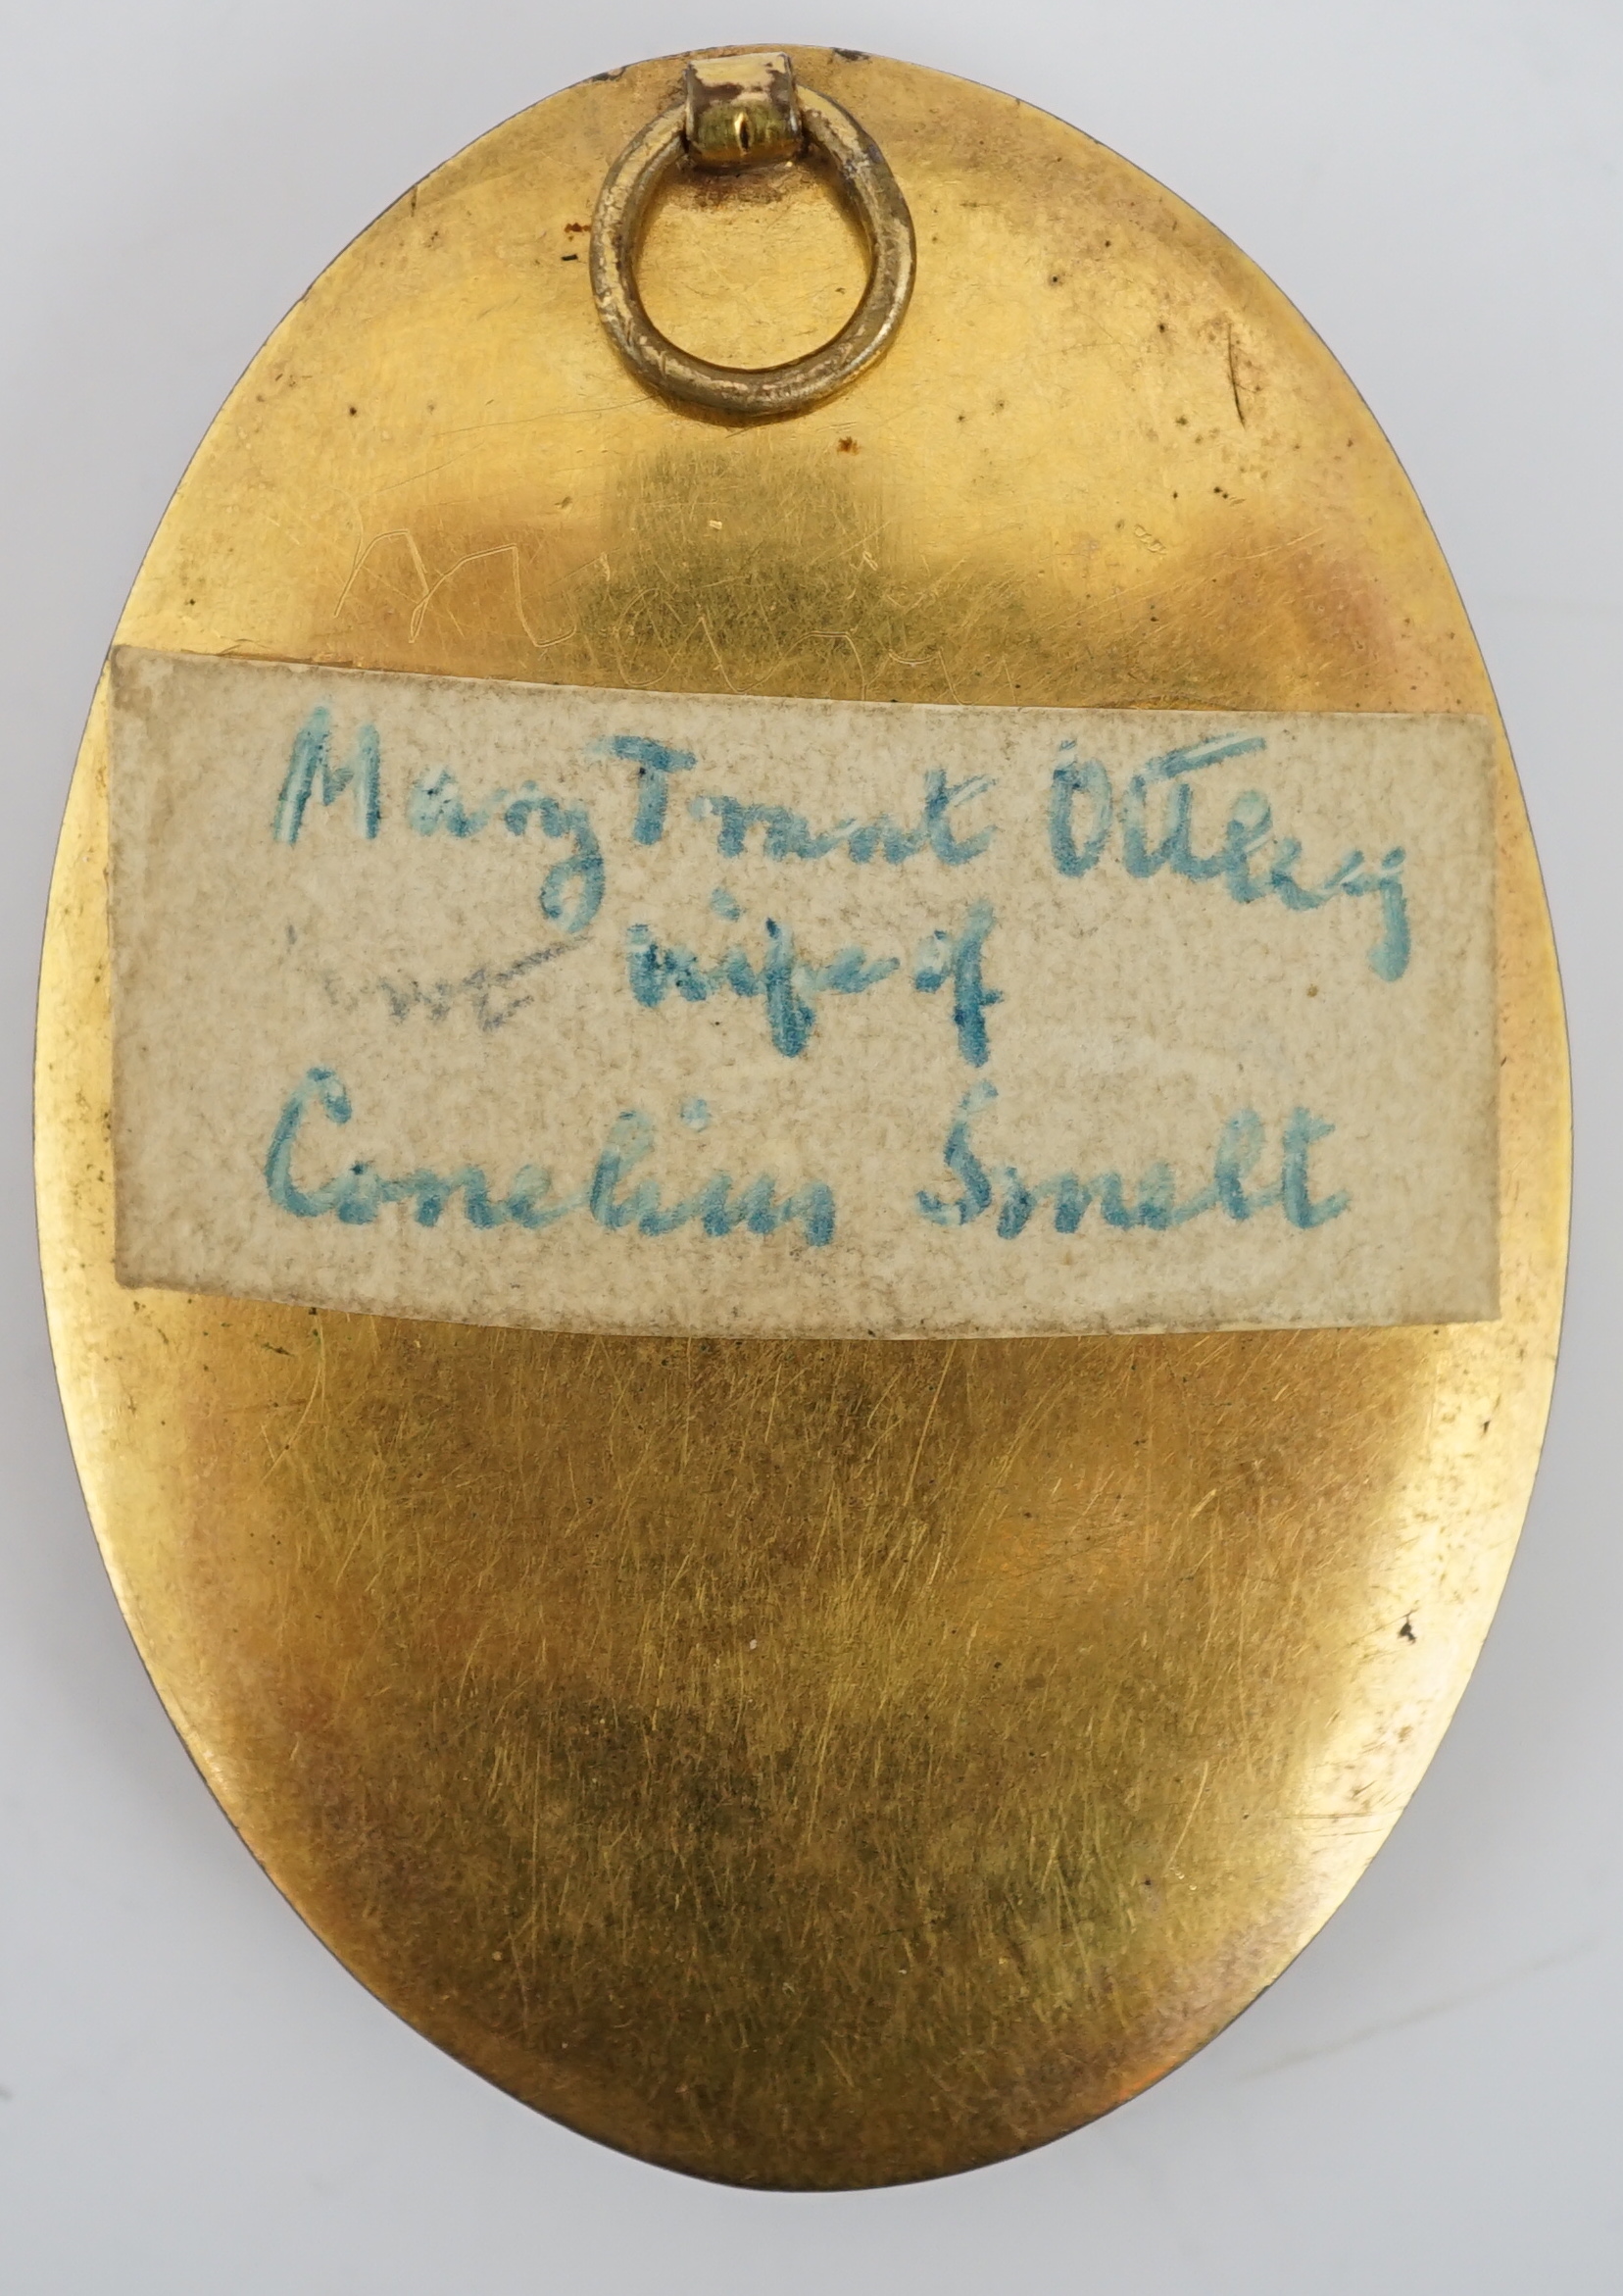 Mary Trant Ottley
not wife of
Cornelius Smelt